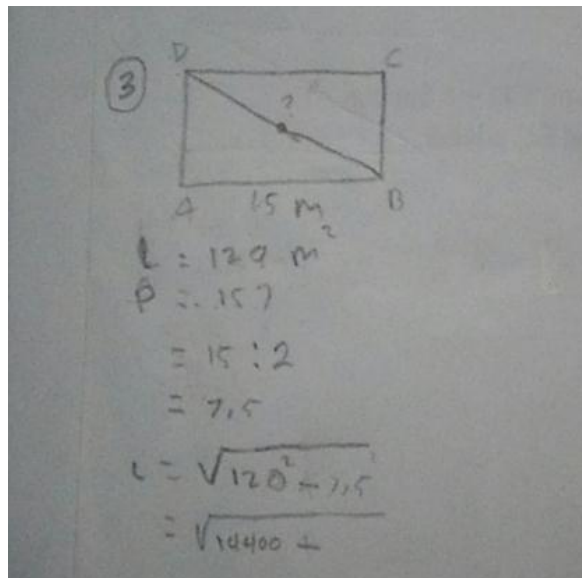 3
D C
?
A 15 m B
L = 120 m²
P = 15 ?
= 15 : 2
= 7,5
L = √120² + 7,5
= √14400 +